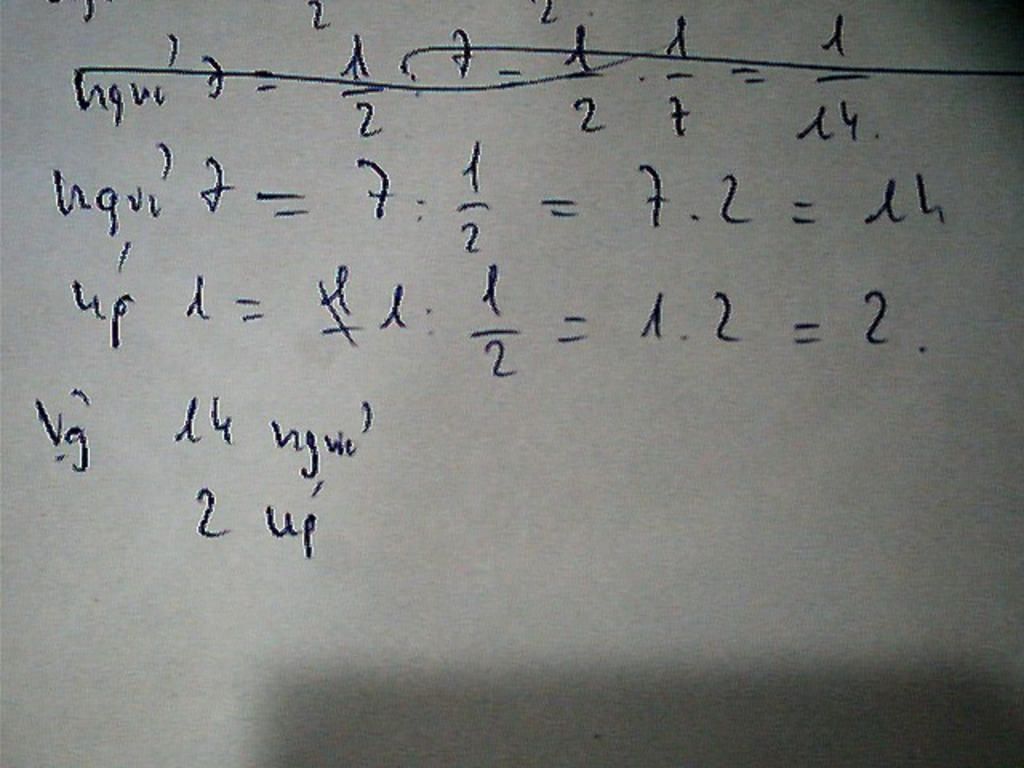 2 2
ngửi 7 = 1/2 : 7 = 1/2 . 1/7 = 1/14.
ngửi 7 = 7 : 1/2 = 7 . 2 = 14
úp 1 = 1 : 1/2 = 1 . 2 = 2.
Vậy 14 ngửi
2 úp